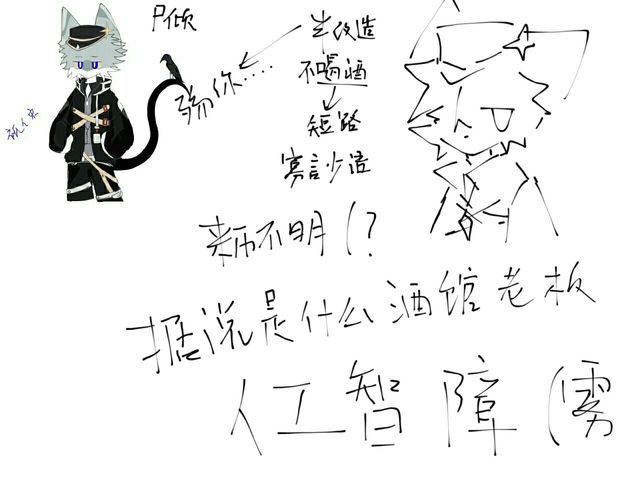 P倾
半改造
不喝酒
短路
寡言少语
你....
来历不明(?
据说是什么酒馆老板
人工智障(雾